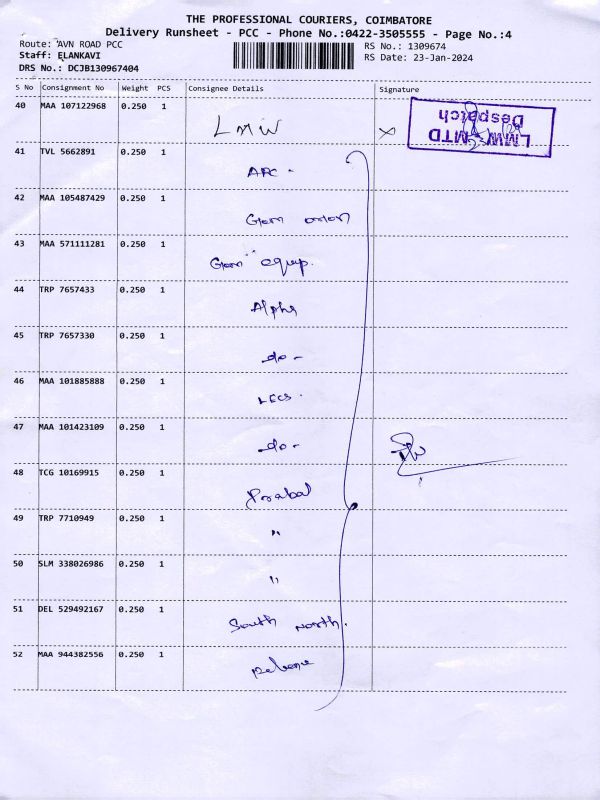 THE PROFESSIONAL COURIERS, COIMBATORE
Delivery Runsheet - PCC - Phone No.:0422-3505555 - Page No.:4
Route: AVN ROAD PCC
RS No.: 1309674
Staff: ELANKAVI
RS Date: 23-Jan-2024
DRS No.: DCJB130967404
S No Consignment No Weight PCS Consignee Details Signature
40 MAA 107122968 0.250 1
LMW
LMW MTD
Despatch
41 TVL 5662891 0.250 1
ARC -
42 MAA 105487429 0.250 1
Gem
43 MAA 571111281 0.250 1
Gem equip.
44 TRP 7657433 0.250 1
Alpha
45 TRP 7657330 0.250 1
-do-
46 MAA 101885888 0.250 1
LECS.
47 MAA 101423109 0.250 1
-do-
48 TCG 10169915 0.250 1
Prabal
49 TRP 7710949 0.250 1
"
50 SLM 338026986 0.250 1
"
51 DEL 529492167 0.250 1
South North.
52 MAA 944382556 0.250 1